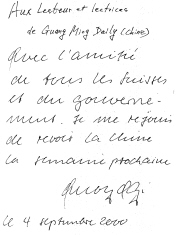 Aux Lecteur et lectrices
de Guang Ming Daily (Chine)
Avec l'amitié
de tous les Suisses
et du gouverne-
ment. Je me réjouis
de revoir la Chine
la semaine prochaine
le 4 septembre 2000